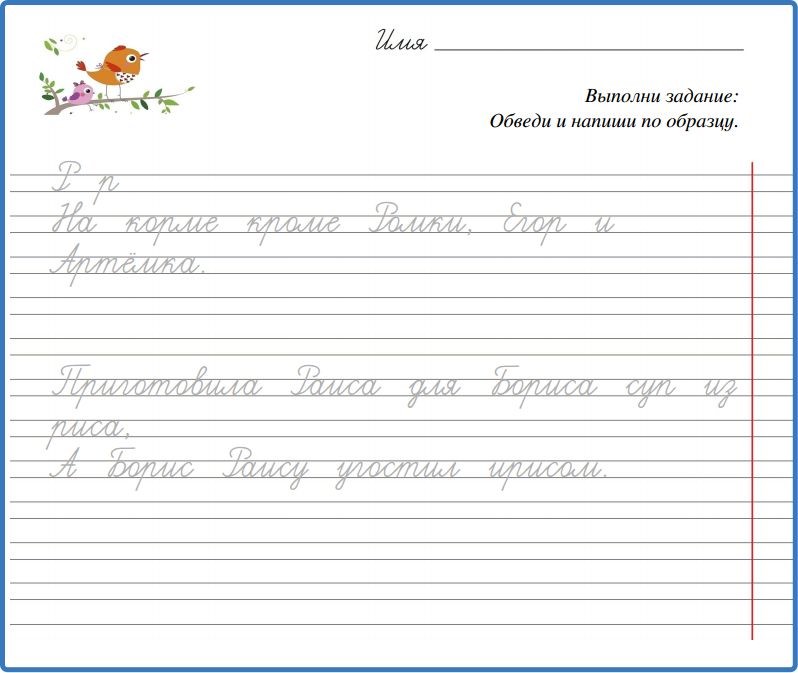 Имя
Выполни задание:
Обведи и напиши по образцу.
Р р
На корме кроме Ромки, Егор и
Артёмка.
Приготовила Раиса для Бориса суп из
риса,
А Борис Раису угостил ирисом.